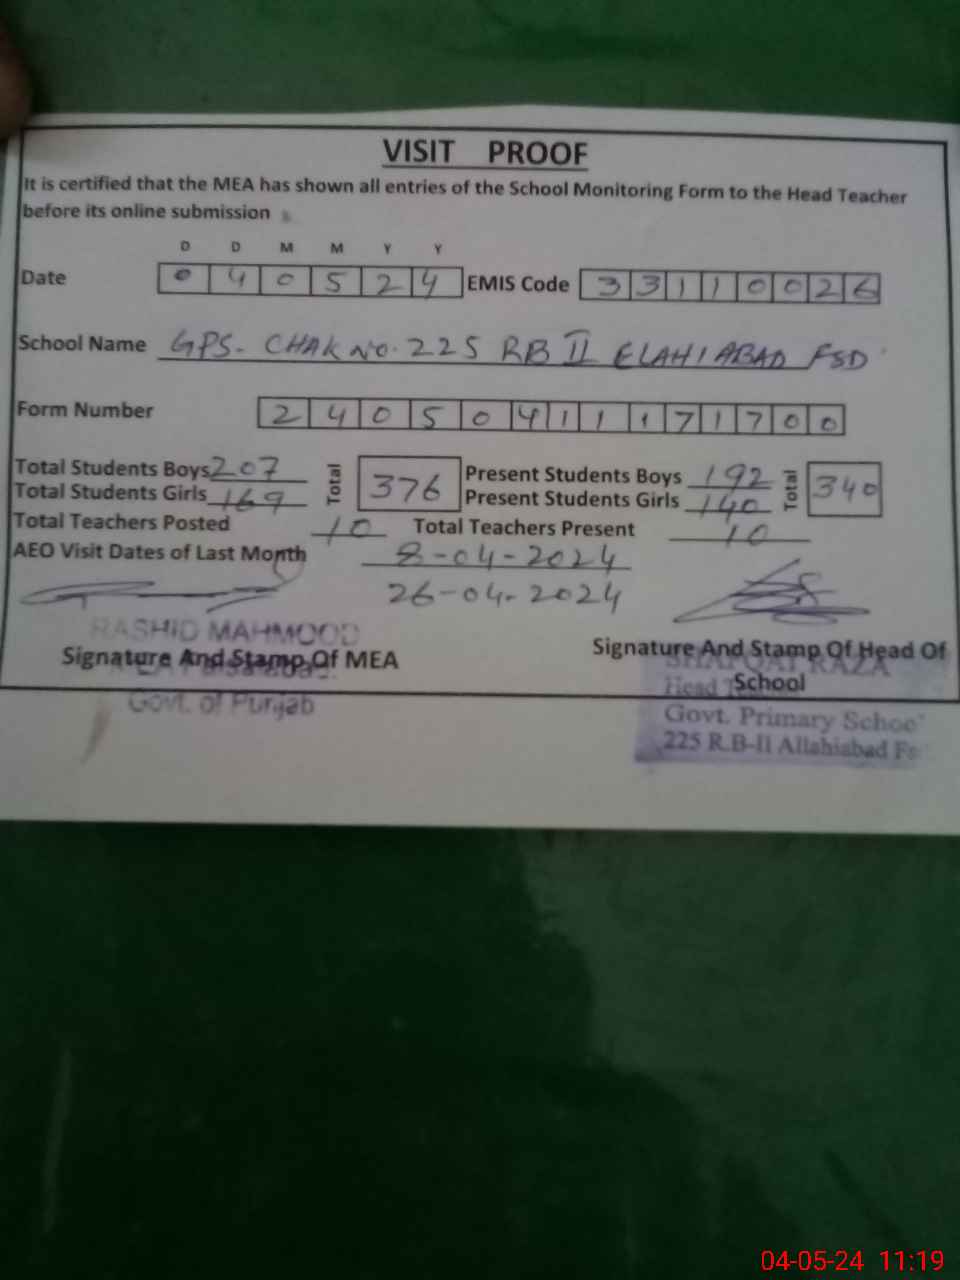 VISIT PROOF
It is certified that the MEA has shown all entries of the School Monitoring Form to the Head Teacher
before its online submission
D D M M Y Y
Date 0 4 0 5 2 4 EMIS Code 3 3 1 1 0 0 2 6
School Name GPS- CHAK NO. 225 RB II ELAHIABAD FSD
Form Number 2 4 0 5 0 4 1 1 1 7 1 7 0 0
Total Students Boys 207 Total 376 Present Students Boys 192 Total 340
Total Students Girls 169 Present Students Girls 140
Total Teachers Posted 10 Total Teachers Present 10
AEO Visit Dates of Last Month 8-04-2024
26-04-2024
RASHID MAHMOOD
Signature And Stamp Of MEA
Govt. of Punjab
Signature And Stamp Of Head Of
School
SHAFQAT RAZA
Head
Govt. Primary School
225 R.B-II Allahiabad Fs
04-05-24 11:19